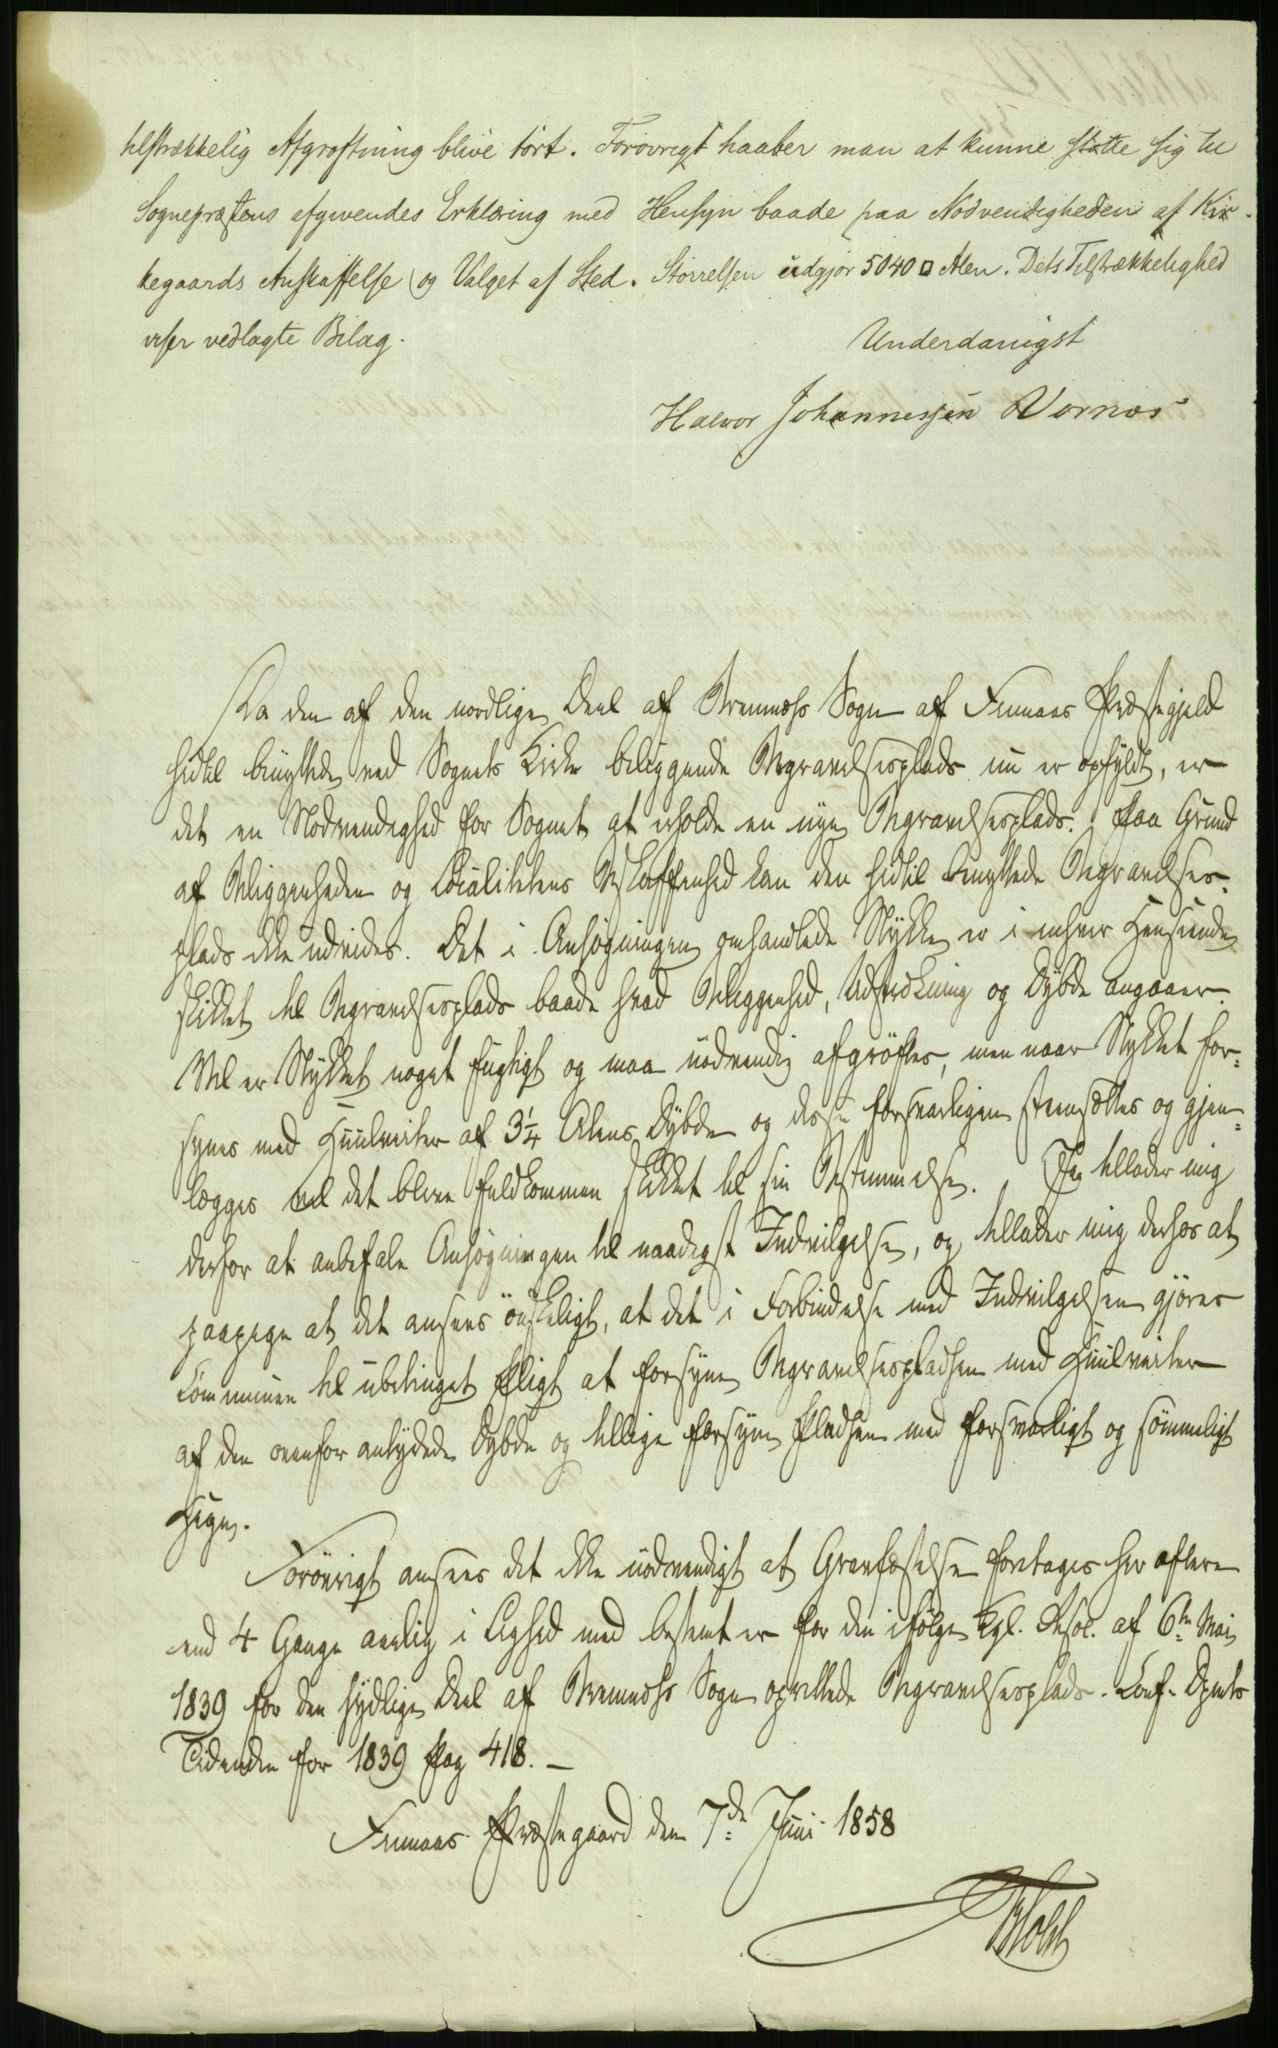 tilstrækkelig Afgrøftning blive tört. Forøvrigt haaber man at kunne støtte sig til
Sognepræstens afgivendes Erklæring med Hensyn baade paa Nødvendigheden af Kir-
kegaards Anskaffelse og Valget af Sted. Størrelsen üdgjør 5040 □ Alen. Dets Tilstrækkelighed
viser vedlagte Bilag.
Underdanigst
Halvor Johannessen Vornæs
Da den af den nordlige Deel af Bremnæss Sogn af Finnaas Præstegjeld
hidtil benyttede ved Sognets Kirke beliggende Begravelsesplads nu er opfyldt, er
det en Nødvendighed for Sognet at erholde en nye Begravelsesplads. Paa Grund
af Beliggenheden og Localitetens Beskaffenhed kan den hidtil benyttede Begravelses-
plads ikke udvides. Det i Ansøgningen omhandlede Stykke er i enhver Henseende
skikket til Begravelsesplads baade hvad Beliggenhed, Udstrekning og Dybde angaaer.
Vel er Stykket noget fugtigt og maa nødvendig afgrøftes, men naar Stykket for-
synes med Huulveiter af 3¼ Alens Dybde og disse forsvarligen steensættes og gjen-
lægges vil det blive fuldkommen skikket til sin Bestemmelse. Jeg tillader mig
derfor at anbefale Ansøgningen til naadigst Indvilgelse, og tillader mig derhos at
paapege at det ansees önskeligt, at det i Forbindelse med Indvilgelsen gjøres
Communen til ubetinget Pligt at forsyne Begravelsespladsen med Huulveiter
af den ovenfor antydede Dybde og tillige forsyne Pladsen med forsvarligt og sömmeligt
Hegn.
Forövrigt ansees det ikke nödvendigt at Gravfæstelse foretages her oftere
end 4 Gange aarlig i Lighed med bestemt er for den ifölge Kgl. Resol. af 6te Mai
1839 for den sydlige Deel af Bremnæss Sogn oprettede Begravelsesplads. Conf. Dpmts
Tidenden for 1839 Pag 418. —
Finnaas Præstegaard den 7de Juni 1858